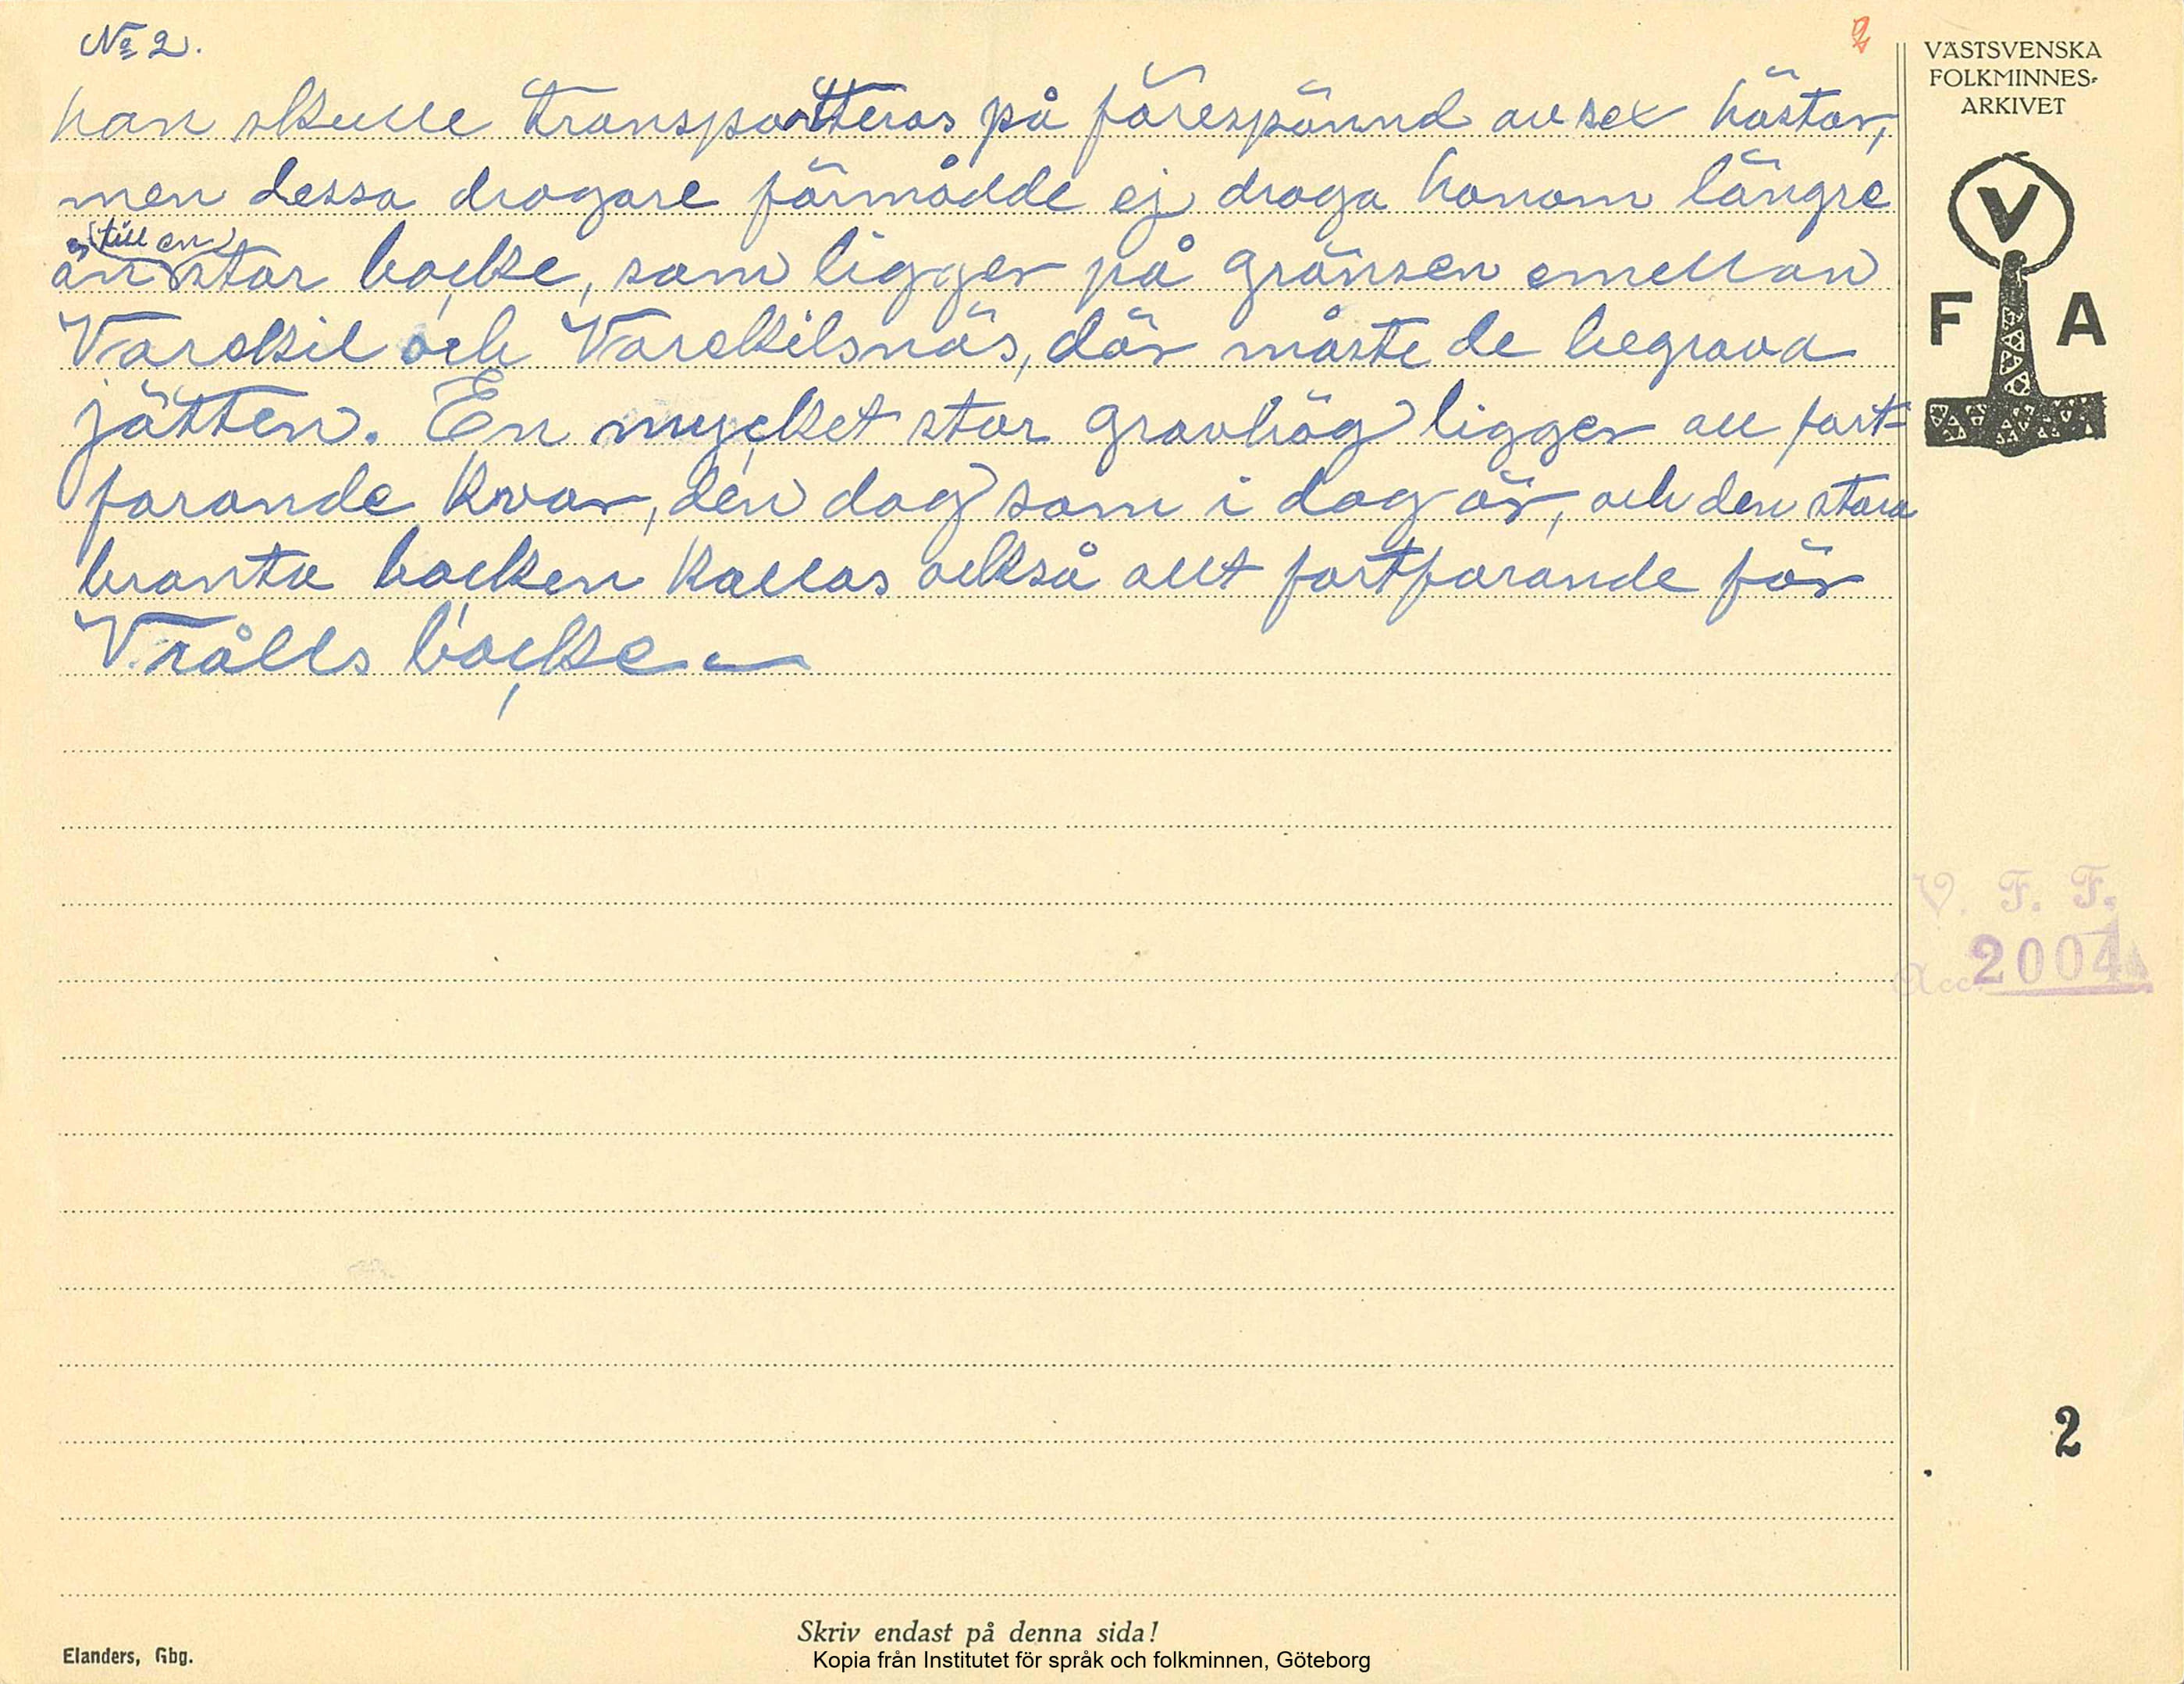 No 2.
2
han skulle transportteras på förespännd av sex hästar,
men dessa dragare förmådde ej draga honom längre
än till en stor backe, som ligger på gränsen emellan
Varekil och Varekilsnäs, där måste de begrava
jätten. En mycket stor gravhög ligger all fort=
farande kvar, den dag som i dag är, och den stora
branta backen kallas också allt fortfarande för
Vrålls backe
VÄSTSVENSKA
FOLKMINNES-
ARKIVET
V
F A
V. F. F.
Acc. 2004
2
Skriv endast på denna sida!
Elanders, Gbg.
Kopia från Institutet för språk och folkminnen, Göteborg